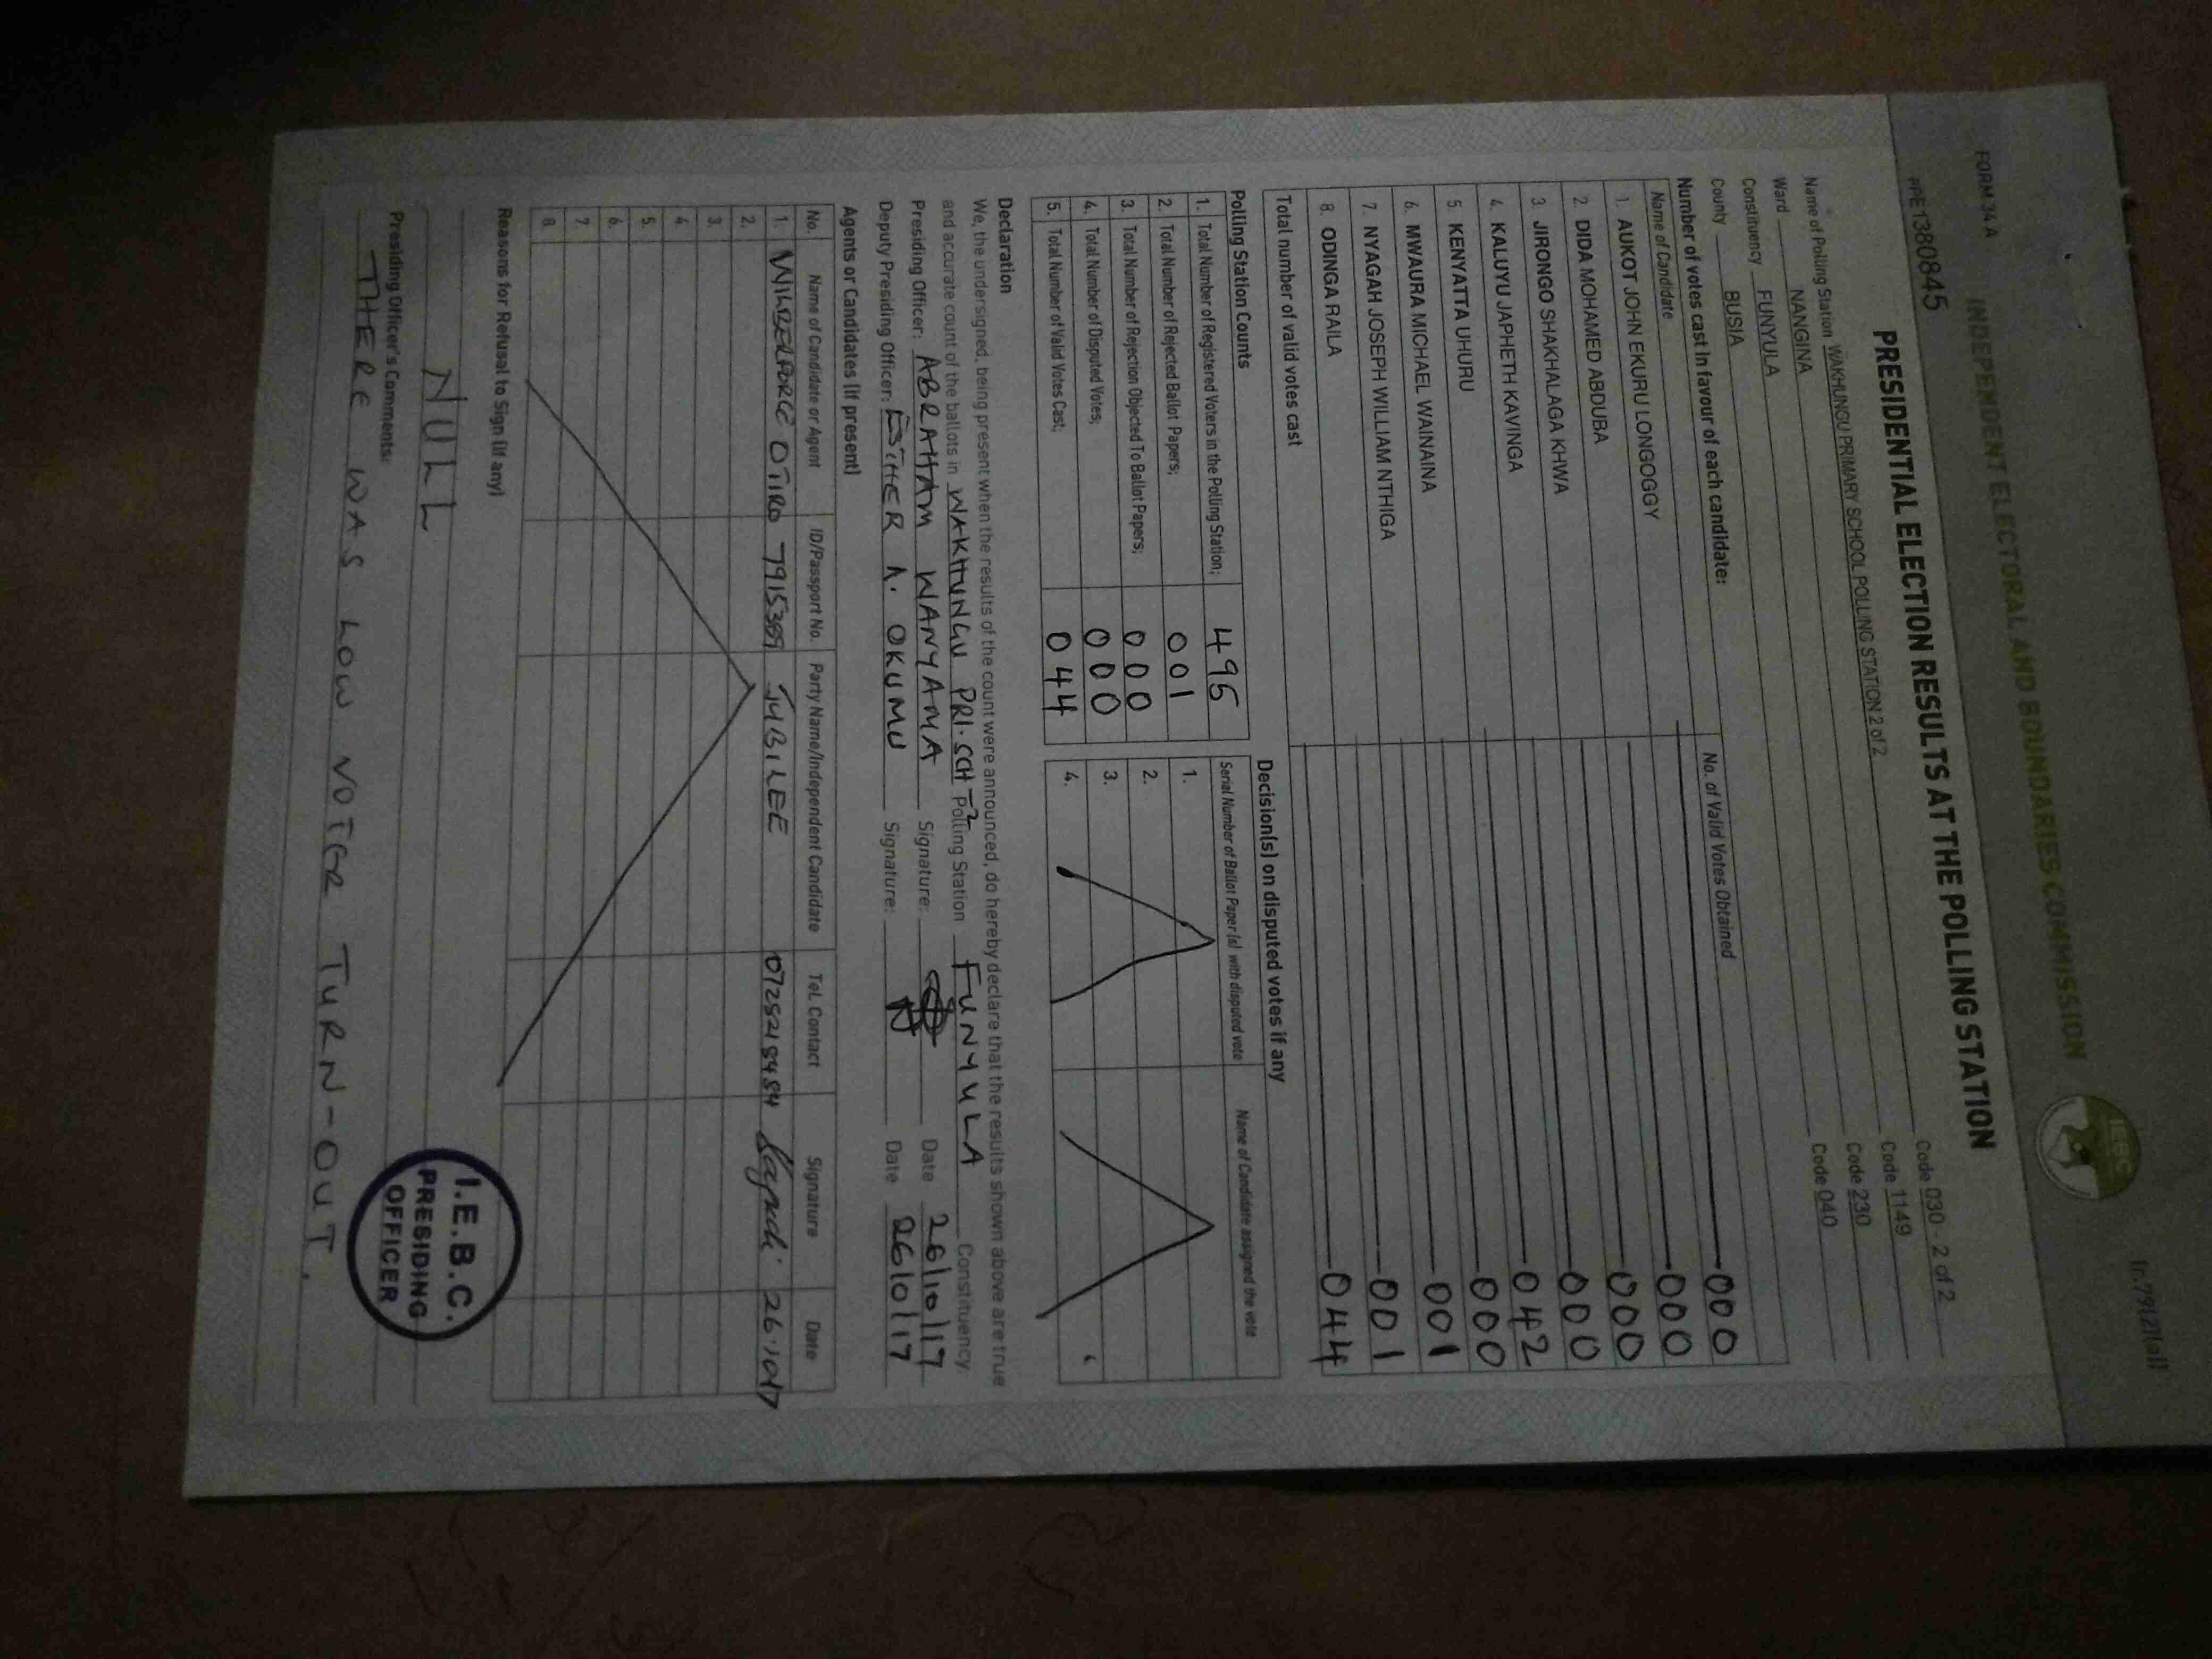 Ir.79(2)(a))
FORM 34 A INDEPENDENT ELECTORAL AND BOUNDARIES COMMISSION
IEBC
PPE1380845
PRESIDENTIAL ELECTION RESULTS AT THE POLLING STATION
Name of Polling Station WAKHUNGU PRIMARY SCHOOL POLLING STATION 2 of 2 Code 030 - 2 of 2
Ward NANGINA Code 1149
Constituency FUNYULA Code 230
County BUSIA Code 040
Number of votes cast in favour of each candidate:
Name of Candidate No. of Valid Votes Obtained
1. AUKOT JOHN EKURU LONGOGGY 000
2. DIDA MOHAMED ABDUBA 000
3. JIRONGO SHAKHALAGA KHWA 000
4. KALUYU JAPHETH KAVINGA 000
5. KENYATTA UHURU 042
6. MWAURA MICHAEL WAINAINA 000
7. NYAGAH JOSEPH WILLIAM NTHIGA 001
8. ODINGA RAILA 001
Total number of valid votes cast 044
Polling Station Counts Decision(s) on disputed votes if any
1. Total Number of Registered Voters in the Polling Station; 495 Serial Number of Ballot Paper (s) with disputed vote Name of Candidate assigned the vote
2. Total Number of Rejected Ballot Papers; 001 1.
3. Total Number of Rejection Objected To Ballot Papers; 000 2.
4. Total Number of Disputed Votes; 000 3.
5. Total Number of Valid Votes Cast; 044 4.
Declaration
We, the undersigned, being present when the results of the count were announced, do hereby declare that the results shown above are true
and accurate count of the ballots in WAKHUNGU PRI. SCH -2 Polling Station FUNYULA Constituency.
Presiding Officer: ABRAHAM WANYAMA Signature: Date 26/10/17
Deputy Presiding Officer: ESTHER A. OKUMU Signature: Date 26/10/17
Agents or Candidates (if present)
No. Name of Candidate or Agent ID/Passport No. Party Name/Independent Candidate Tel. Contact Signature Date
1. WILBERFORCE OTIRO JUBILEE
2.
3.
4.
5.
6.
7.
8.
Reasons for Refusal to Sign (if any)
NULL
Presiding Officer's Comments:
THERE WAS LOW VOTER TURN-OUT.
I.E.B.C.
PRESIDING
OFFICER